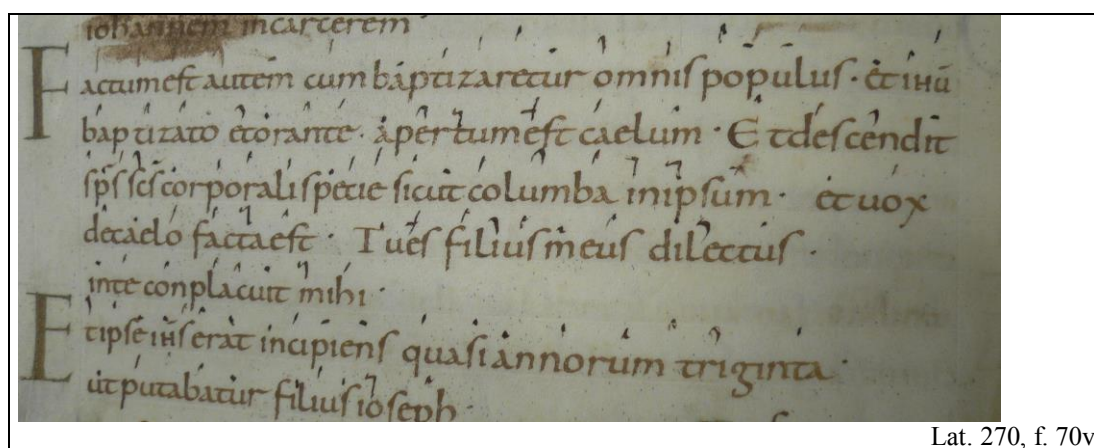 iohannem incarcerem
Factumest autem cum baptizaretur omnis populus · et ihū
baptizato etorante · apertumest caelum · Et descendit
sp̄s sc̄s corporalispecie sicut columba inipsum · et uox
decaelo factaest · Tues filiusmeus dilectus ·
inte conplacuit mihi ·
Etipse ih̄s erat incipiens quasi annorum triginta ·
ut putabatur filius ioseph ·
Lat. 270, f. 70v